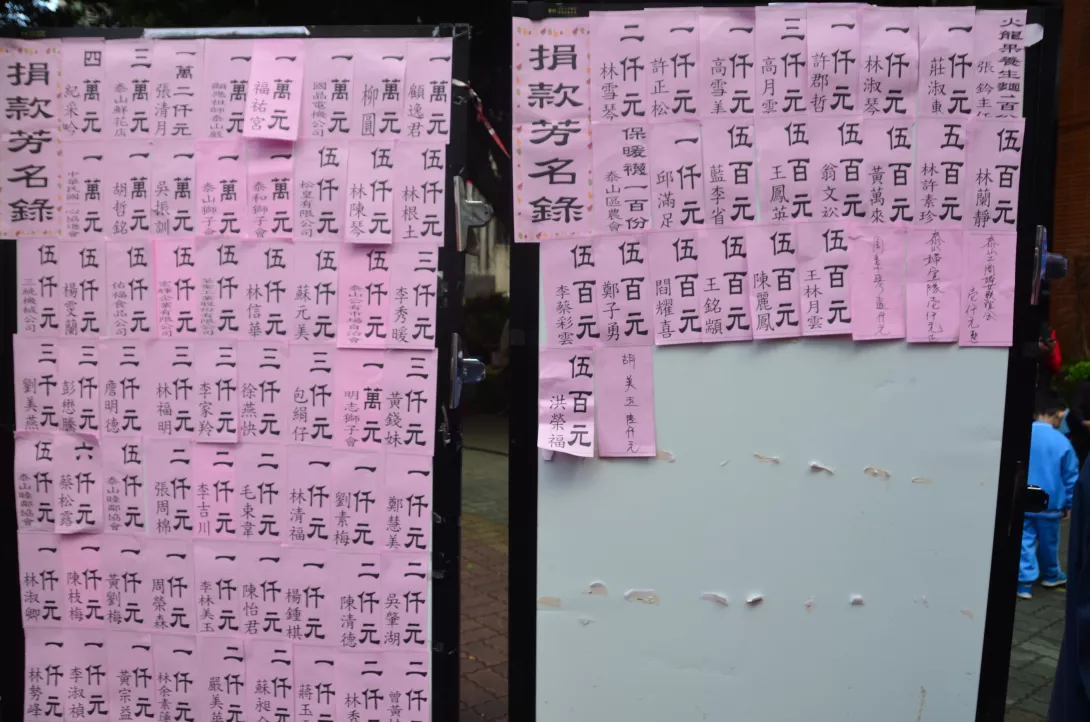 捐款芳名錄
一萬元 顧逸君
一萬元 柳圓
一萬元 國晶電機公司
一萬元 福祐宮
一萬元 顯應祖師泰山巖
一萬二仟元 張清月
二萬元 泰山鮮花店
四萬元 紀采吟
伍仟元 林根土
伍仟元 林陳琴
伍仟元 松皇有限公司
一萬元 泰和獅子會
一萬元 泰山獅子會
一萬元 吳振訓
一萬元 胡哲銘
一萬元
三仟元 李秀暖
伍仟元 泰山公有市場自治會
伍仟元 蘇元美
伍仟元 林信華
伍仟元
伍仟元
伍仟元 佑福食品公司
伍仟元 楊雯蘭
伍仟元
三仟元 黃錢妹
一萬元 明志獅子會
三仟元 包絹仔
三仟元 徐燕快
三仟元 李家羚
三仟元 林福明
三仟元 詹明德
三仟元 彭懋騰
三千元 劉美燕
一仟元 鄭慧美
一仟元 劉素梅
一仟元 林清福
二仟元 毛東韋
二仟元 李吉川
二仟元 張周棉
伍仟元 泰山睦鄰協會
六仟元 蔡松露
伍仟元 泰山睦鄰協會
二仟元 吳肇湖
二仟元 陳清德
一仟元 楊鍾棋
一仟元 陳怡君
一仟元 李林美玉
一仟元 周榮森
一仟元 黃劉梅
一仟元 陳枝梅
一仟元 林淑卿
二仟元
二仟元 林秀
一仟元 蔣玉
二仟元
二仟元 嚴美華
一仟元 林余素蓮
一仟元 黃宗益
一仟元 李淑禎
一仟元 林勢峰
捐款芳名錄
火龍果養生麵一百份 張鈐主任
一仟元 莊淑東
一仟元 林淑琴
一仟元 許郡哲
三仟元 高月雲
一仟元 高雪美
一仟元 許正松
二仟元 林雪琴
伍百元 林蘭靜
五百元 林許素珍
伍百元 黃萬來
伍百元 翁文訟
伍百元 王鳳英
伍百元 藍李省
一仟元 邱滿足
保暖襪一百份 泰山區農會
伍百元 王林月雲
伍百元 陳麗鳳
伍百元 王銘顓
伍百元 閻耀喜
伍百元 鄭子勇
伍百元 李蔡彩雲
胡美玉 陸仟元
伍百元 洪榮福